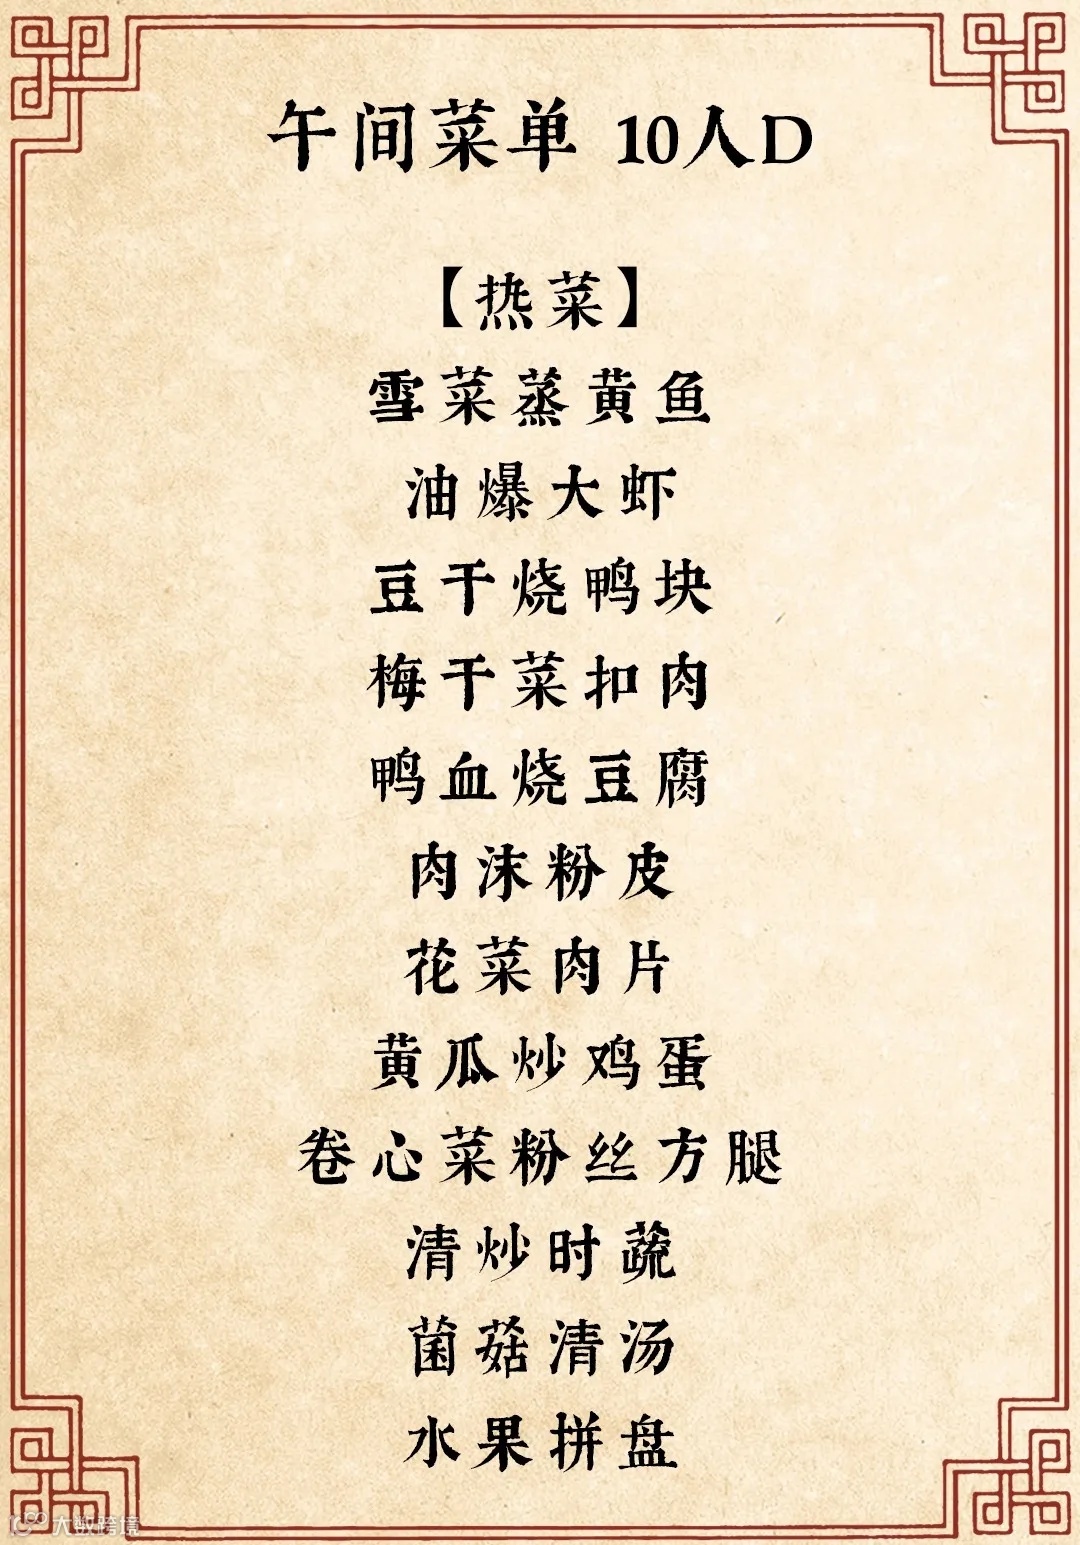 午间菜单 10人D
【热菜】
雪菜蒸黄鱼
油爆大虾
豆干烧鸭块
梅干菜扣肉
鸭血烧豆腐
肉沫粉皮
花菜肉片
黄瓜炒鸡蛋
卷心菜粉丝方腿
清炒时蔬
菌菇清汤
水果拼盘
大数跨境